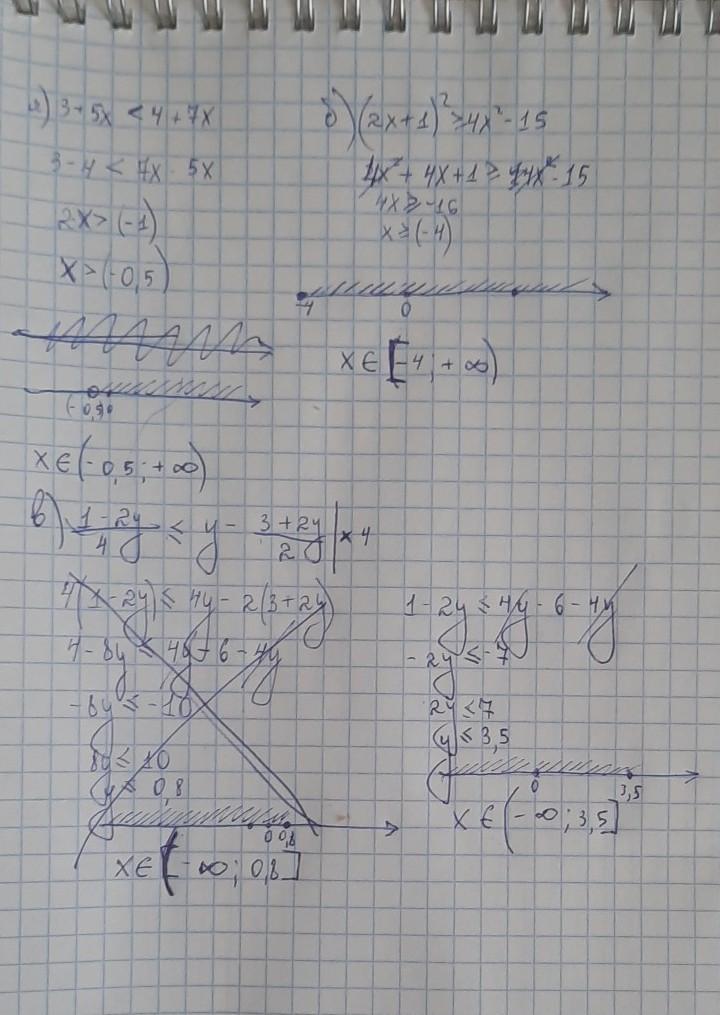 а) 3+5x < 4+7x
3-4 < 7x-5x
2x > (-1)
x > (-0,5)
(-0,5) 0
x ∈ (-0,5; +∞)
б) (2x+1)² ≥ 4x²-15
4x² + 4x+1 ≥ 4x²-15
4x ≥ -16
x ≥ (-4)
-4 0
x ∈ [-4; +∞)
в) (1-2y)/4 ≤ y - (3+2y)/2 | ×4
4(1-2y) ≤ 4y - 2(3+2y)
4-8y ≤ 4y-6-4y
-8y ≤ -10
8y ≤ 10
y ≤ 0,8
0 0,8
x ∈ (-∞; 0,8]
1-2y ≤ 4y-6-4y
-2y ≤ -7
2y ≤ 7
y ≤ 3,5
0 3,5
x ∈ (-∞; 3,5]